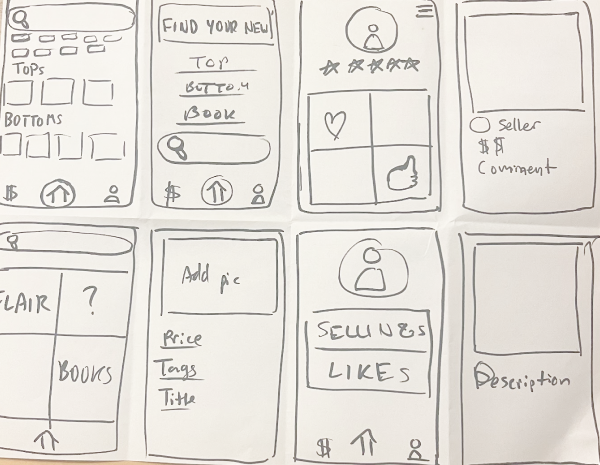 TOPS
BOTTOMS
$
FIND YOUR NEW
TOP
BUTTOM
BOOK
$
Seller
$$
Comment
FLAIR
?
BOOKS
Add pic
Price
Tags
Title
SELLINGS
LIKES
$
Description